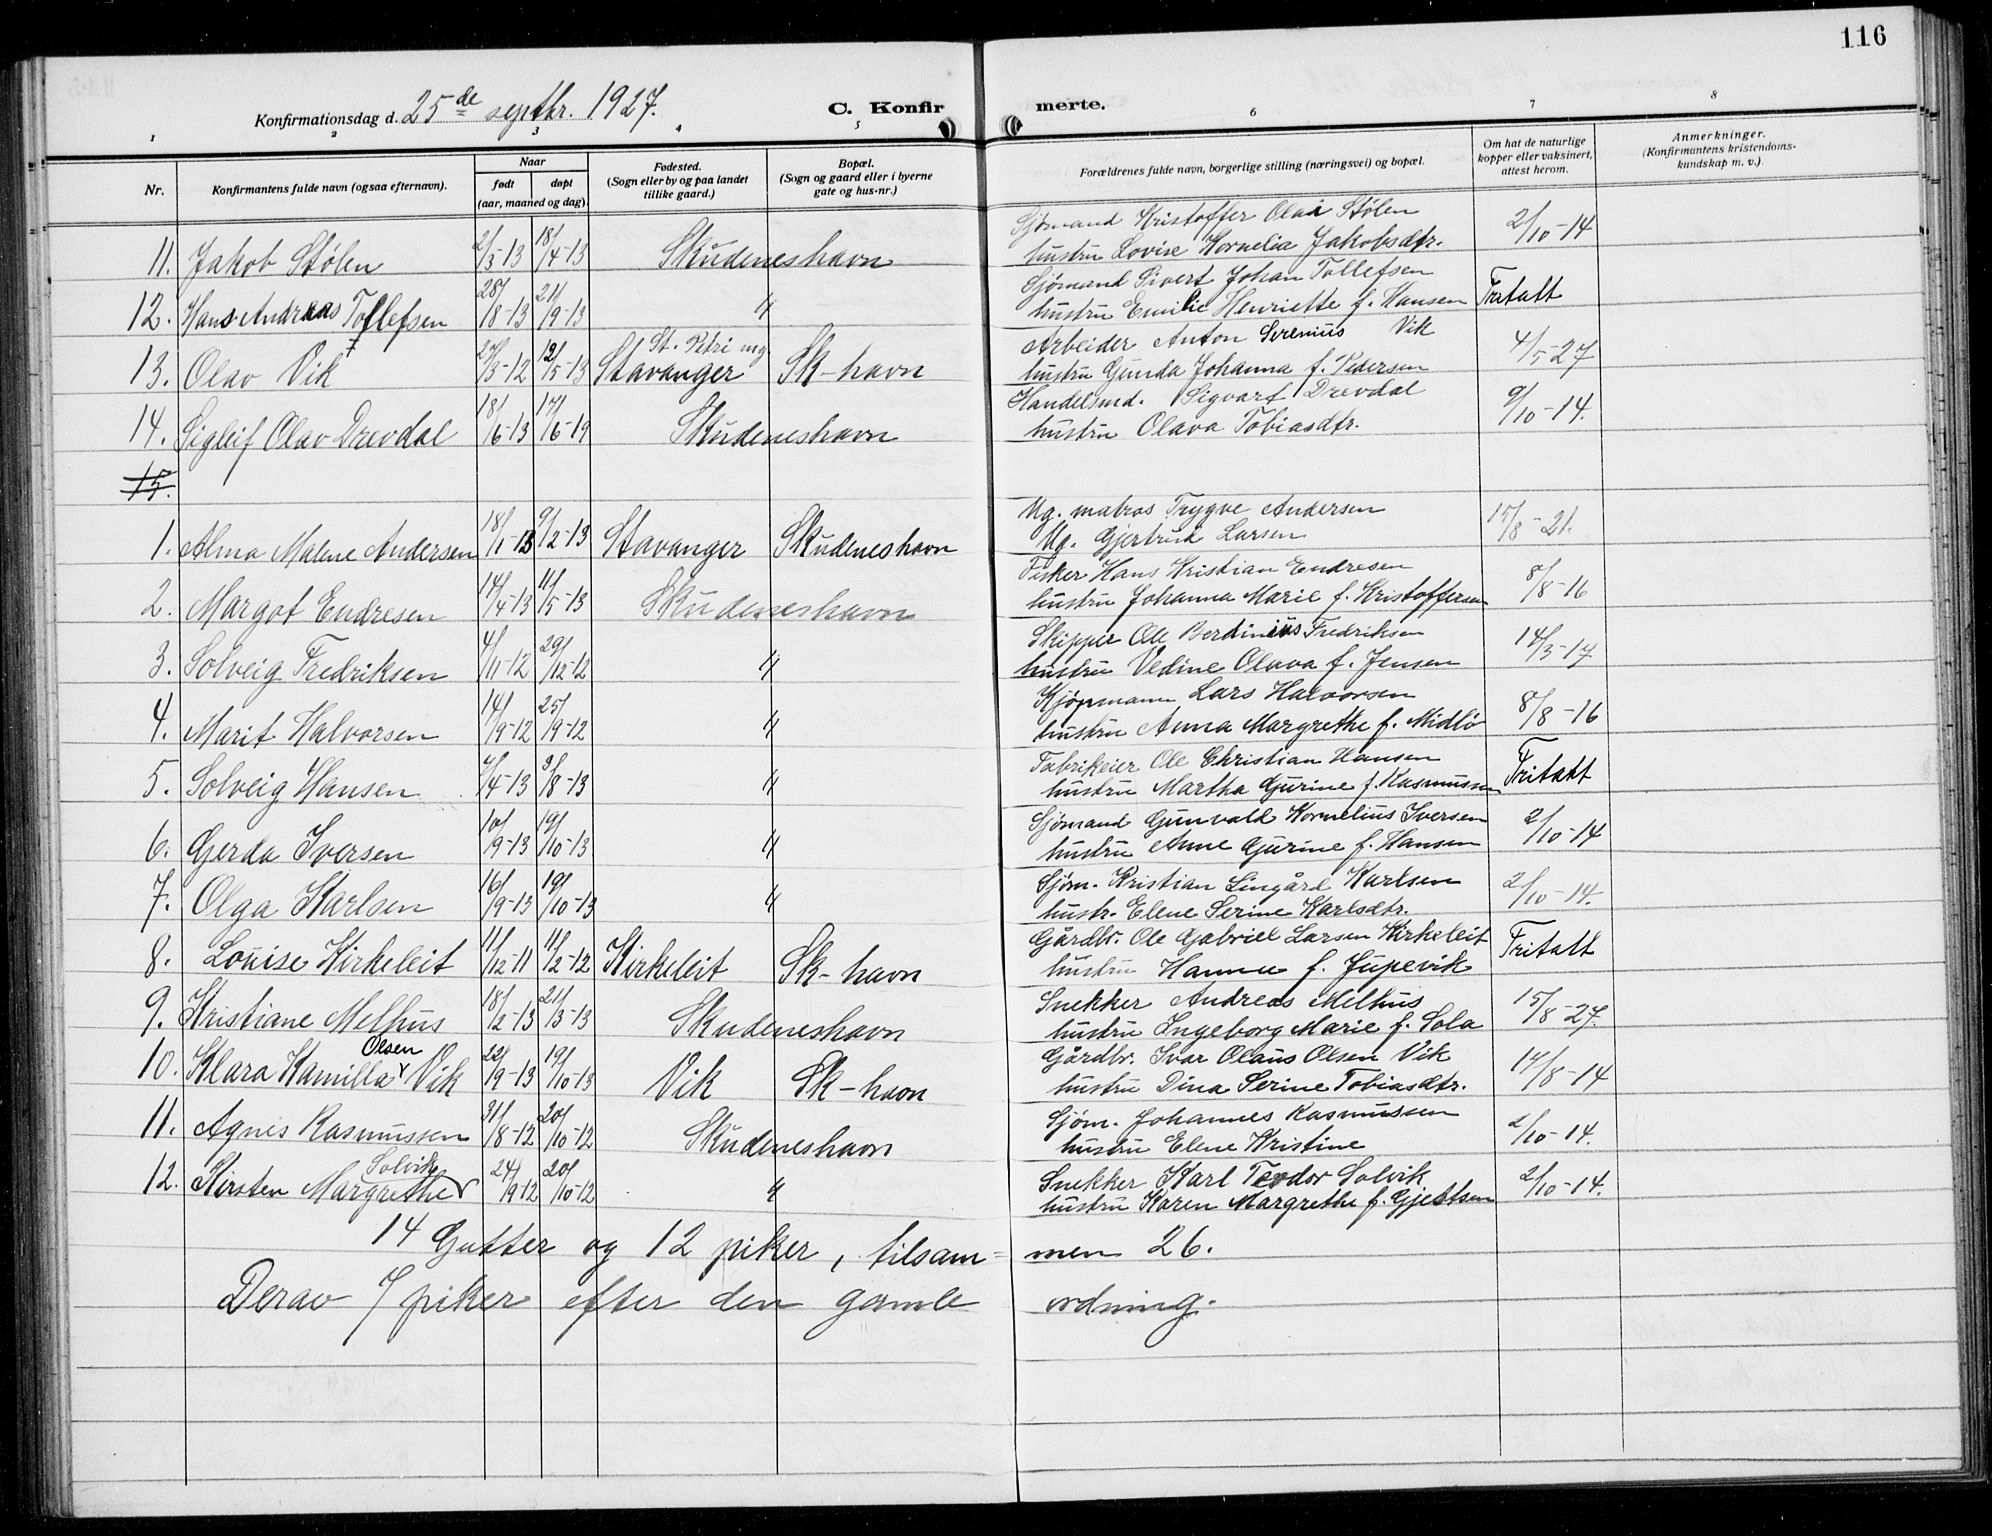 116
Konfirmationsdag d. 25de septbr. 1927.
C. Konfirmerte.
1 2 3 4 5 6 7 8
Nr. Konfirmantens fulde navn (ogsaa efternavn). Naar født døpt (aar, maaned og dag). Fødested. (Sogn eller by og paa landet tillike gaard.) Bopæl. (Sogn og gaard eller i byerne gate og hus-nr.) Forældrenes fulde navn, borgerlige stilling (næringsvei) og bopæl. Om hat de naturlige kopper eller vaksinert, attest herom. Anmerkninger. (Konfirmantens kristendomskundskap m. v.).
11. Jakob Stølen 2/3-13 18/4-13 Skudeneshavn Sjømand Kristoffer Olai Stølen 2/10-14
hustru Lovise Kornelia Jakobsdtr.
12. Hans Andreas Tollefsen 28/8-13 21/9-13 " Sjømand Sivert Johan Tollefsen Fritatt
hustru Emilie Henriette f. Hansen
13. Olav Vik 27/3-12 12/5-13 St. Petri mg. Stavanger Sk-havn Arbeider Anton Serenius Vik 4/5-27
hustru Gunda Johanna f. Pedersen
14. Sigleif Olav Drevdal 18/6-13 17/6-19 Skudeneshavn Handelsmd. Sigvart Drevdal 9/10-14.
hustru Olava Tobiasdtr.
15.
1. Alma Malene Andersen 18/1-13 9/2-13 Stavanger Skudeneshavn Ug. matros Trygve Andersen 15/8-21.
Ug. Gjertrud Larsen
2. Margot Endresen 14/4-13 11/5-13 Skudeneshavn Fisker Hans Kristian Endresen 8/8-16
hustru Johanna Marie f. Kristoffersen
3. Solveig Fredriksen 4/11-12 29/12-12 " Skipper Ole Berdinius Fredriksen 14/3-17
hustru Vedine Olava f. Jensen
4. Marit Halvorsen 14/9-12 25/9-12 " Kjøpmann Lars Halvorsen 8/8-16
hustru Anna Margrethe f. Midbø
5. Solveig Hansen 7/4-13 3/8-13 " Fabrikeier Ole Christian Hansen Fritatt
hustru Martha Gurine f. Rasmussen
6. Gerda Iversen 10/9-13 19/10-13 " Sjømand Gunvald Kornelius Iversen 2/10-14
hustru Anne Gurine f. Hansen
7. Olga Karlsen 16/9-13 19/10-13 " Sjøm. Kristian Lingård Karlsen 2/10-14.
hustr. Elene Serine Karlsdtr.
8. Louise Kirkeleit 11/12-11 11/2-12 Kirkeleit Sk-havn Gårdbr. Ole Gabriel Larsen Kirkeleit Fritatt
hustru Hanna f. Jupevik
9. Kristiane Melhus 18/2-13 21/3-13 Skudeneshavn Snekker Andreas Melhus 15/8-27.
hustru Ingeborg Marie f. Sola
10. Klara Kamilla Olsen Vik 22/9-13 19/10-13 Vik Sk-havn Gårdbr. Ivar Olaus Olsen Vik 14/8-14
hustru Dina Serine Tobiasdtr.
11. Agnes Rasmussen 31/8-12 20/10-12 Skudeneshavn Sjøm. Johannes Rasmussen 2/10-14.
hustru Elene Kristine
12. Kirsten Margrethe Solvik 24/9-12 20/10-12 " Snekker Karl Teodor Solvik 2/10-14.
hustru Karen Margrethe f. Gjertsen
14 Gutter og 12 piker, tilsammen 26.
Derav 7 piker efter den gamle ordning.